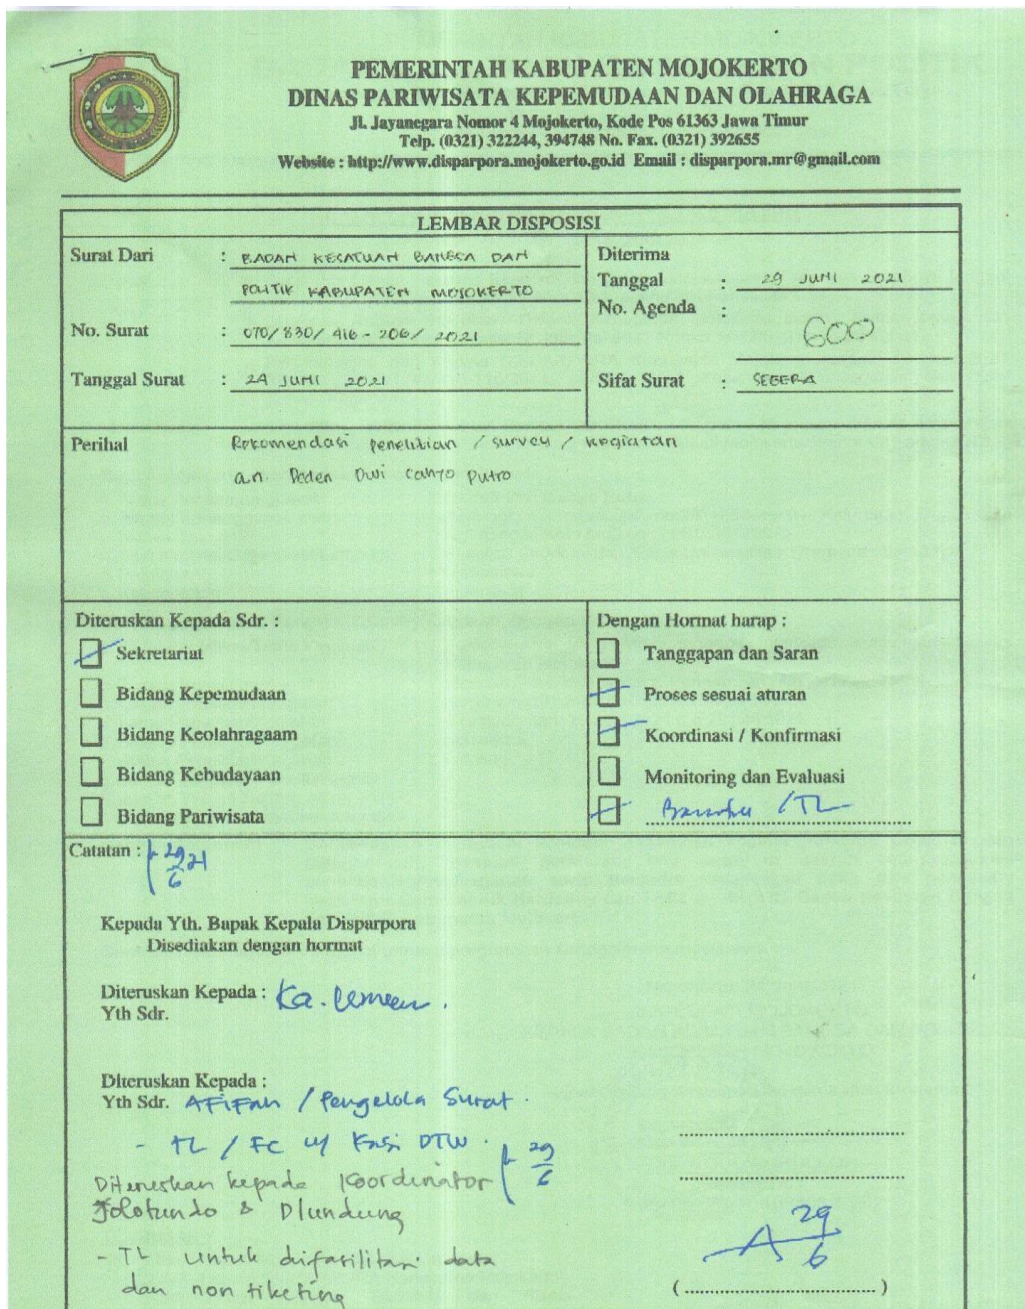 PEMERINTAH KABUPATEN MOJOKERTO
DINAS PARIWISATA KEPEMUDAAN DAN OLAHRAGA
Jl. Jayanegara Nomor 4 Mojokerto, Kode Pos 61363 Jawa Timur
Telp. (0321) 322244, 394748 No. Fax. (0321) 392655
Website : http://www.disparpora.mojokerto.go.id Email : disparpora.mr@gmail.com
LEMBAR DISPOSISI
Surat Dari : BADAN KESATUAN BANGSA DAN
POLITIK KABUPATEN MOJOKERTO
No. Surat : 070/830/416-206/2021
Tanggal Surat : 24 JUNI 2021
Diterima
Tanggal : 29 JUNI 2021
No. Agenda : 600
Sifat Surat : SEGERA
Perihal Rekomendasi penelitian / survey / kegiatan
a.n. Deden Dwi Cahyo Putro
Diteruskan Kepada Sdr. :
Sekretariat
Bidang Kepemudaan
Bidang Keolahragaam
Bidang Kebudayaan
Bidang Pariwisata
Dengan Hormat harap :
Tanggapan dan Saran
Proses sesuai aturan
Koordinasi / Konfirmasi
Monitoring dan Evaluasi
/TL
Catatan : 29/6 21
Kepada Yth. Bapak Kepala Disparpora
Disediakan dengan hormat
Diteruskan Kepada : Ka.
Yth Sdr.
Diteruskan Kepada :
Yth Sdr. AFIFAH / Pengelola Surat.
- TL / FC u/ Kasi DTW. 29/6
Diteruskan kepada Koordinator
Jolotundo & Dlundung
- TL untuk difasilitasi data
dan non tiketing
29/6
(..........................)